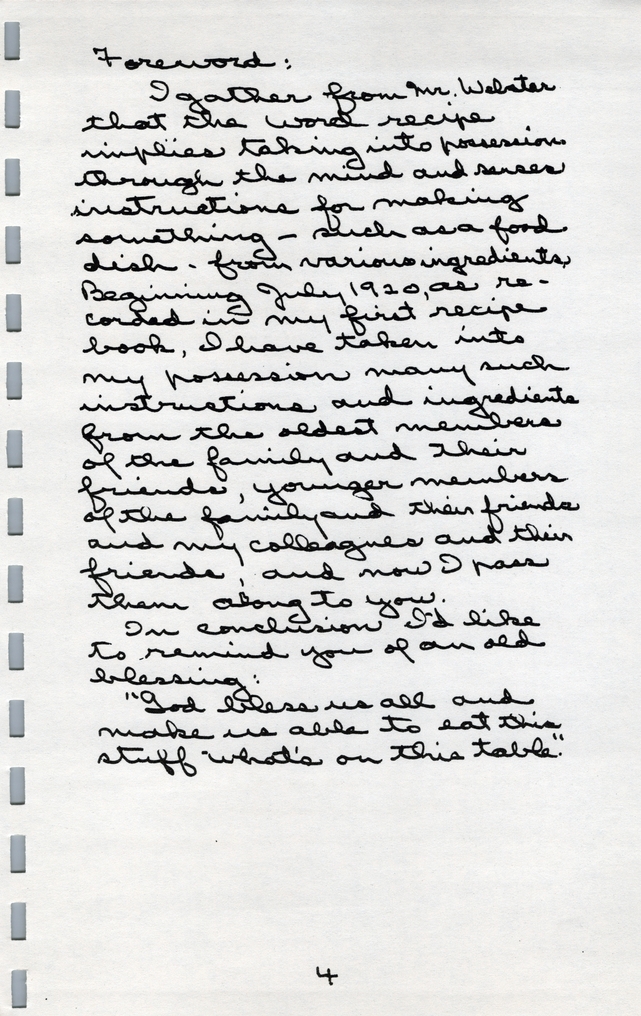 Foreword:
I gather from Mr. Webster
that the word recipe
implies taking into possession
through the mind and senses
instructions for making
something - such as a food
dish - from various ingredients.
Beginning July, 1920, as re-
corded in my first recipe
book, I have taken into
my possession many such
instructions and ingredients
from the oldest members
of the family and their
friends, younger members
of the family and their friends
and my colleagues and their
friends, and now I pass
them along to you.
In conclusion I'd like
to remind you of an old
blessing:
"God bless us all and
make us able to eat this
stuff what's on this table".
4